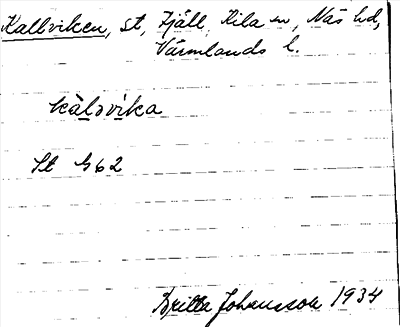 Kallviken, st, Fjäll, Kila sn, Näs hd,
Värmlands l.
kàləvika
St G62
Britta Johansson 1934